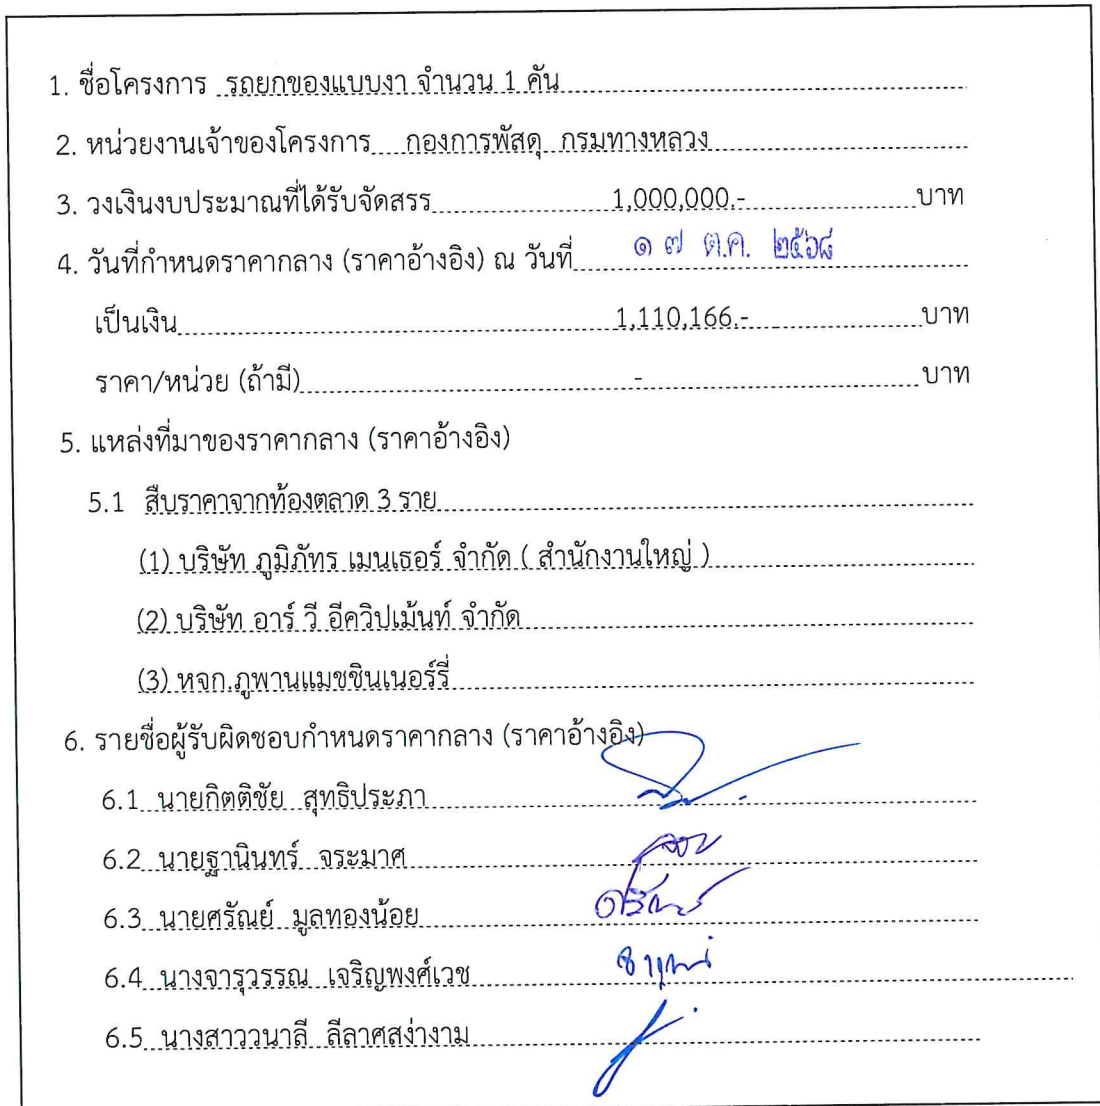 1. ชื่อโครงการ รถยกของแบบงา จำนวน 1 คัน
2. หน่วยงานเจ้าของโครงการ กองการพัสดุ กรมทางหลวง
3. วงเงินงบประมาณที่ได้รับจัดสรร 1,000,000.- บาท
4. วันที่กำหนดราคากลาง (ราคาอ้างอิง) ณ วันที่ ๑๗ ต.ค. ๒๕๖๘
เป็นเงิน 1,110,166.- บาท
ราคา/หน่วย (ถ้ามี) - บาท
5. แหล่งที่มาของราคากลาง (ราคาอ้างอิง)
5.1 สืบราคาจากท้องตลาด 3 ราย
(1) บริษัท ภูมิภัทร เมนเธอร์ จำกัด ( สำนักงานใหญ่ )
(2) บริษัท อาร์ วี อีควิปเม้นท์ จำกัด
(3) หจก.ภูพานแมชชินเนอร์รี่
6. รายชื่อผู้รับผิดชอบกำหนดราคากลาง (ราคาอ้างอิง)
6.1 นายกิตติชัย สุทธิประภา
6.2 นายฐานินทร์ จระมาศ
6.3 นายศรัณย์ มูลทองน้อย
6.4 นางจารุวรรณ เจริญพงศ์เวช
6.5 นางสาววนาลี ลีลาศสง่างาม